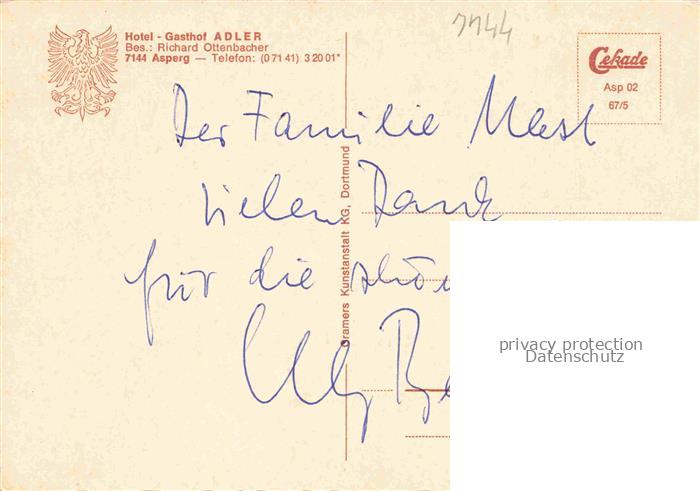 7144
Hotel - Gasthof ADLER
Bes.: Richard Ottenbacher
7144 Asperg — Telefon: (0 71 41) 3 20 01*
Cekade
Asp 02
67/5
Der Familie
vielen Dank
für die
Cramers Kunstanstalt KG, Dortmund
privacy protection
Datenschutz